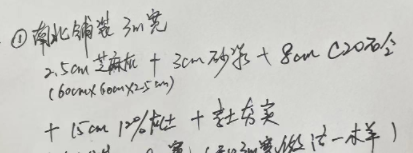 ① 南北铺装 3m宽
2.5cm 芝麻灰 + 3cm砂浆 + 8cm C20砼
(60cm×60cm×2.5cm)
+ 15cm 12%灰土 + 素土夯实